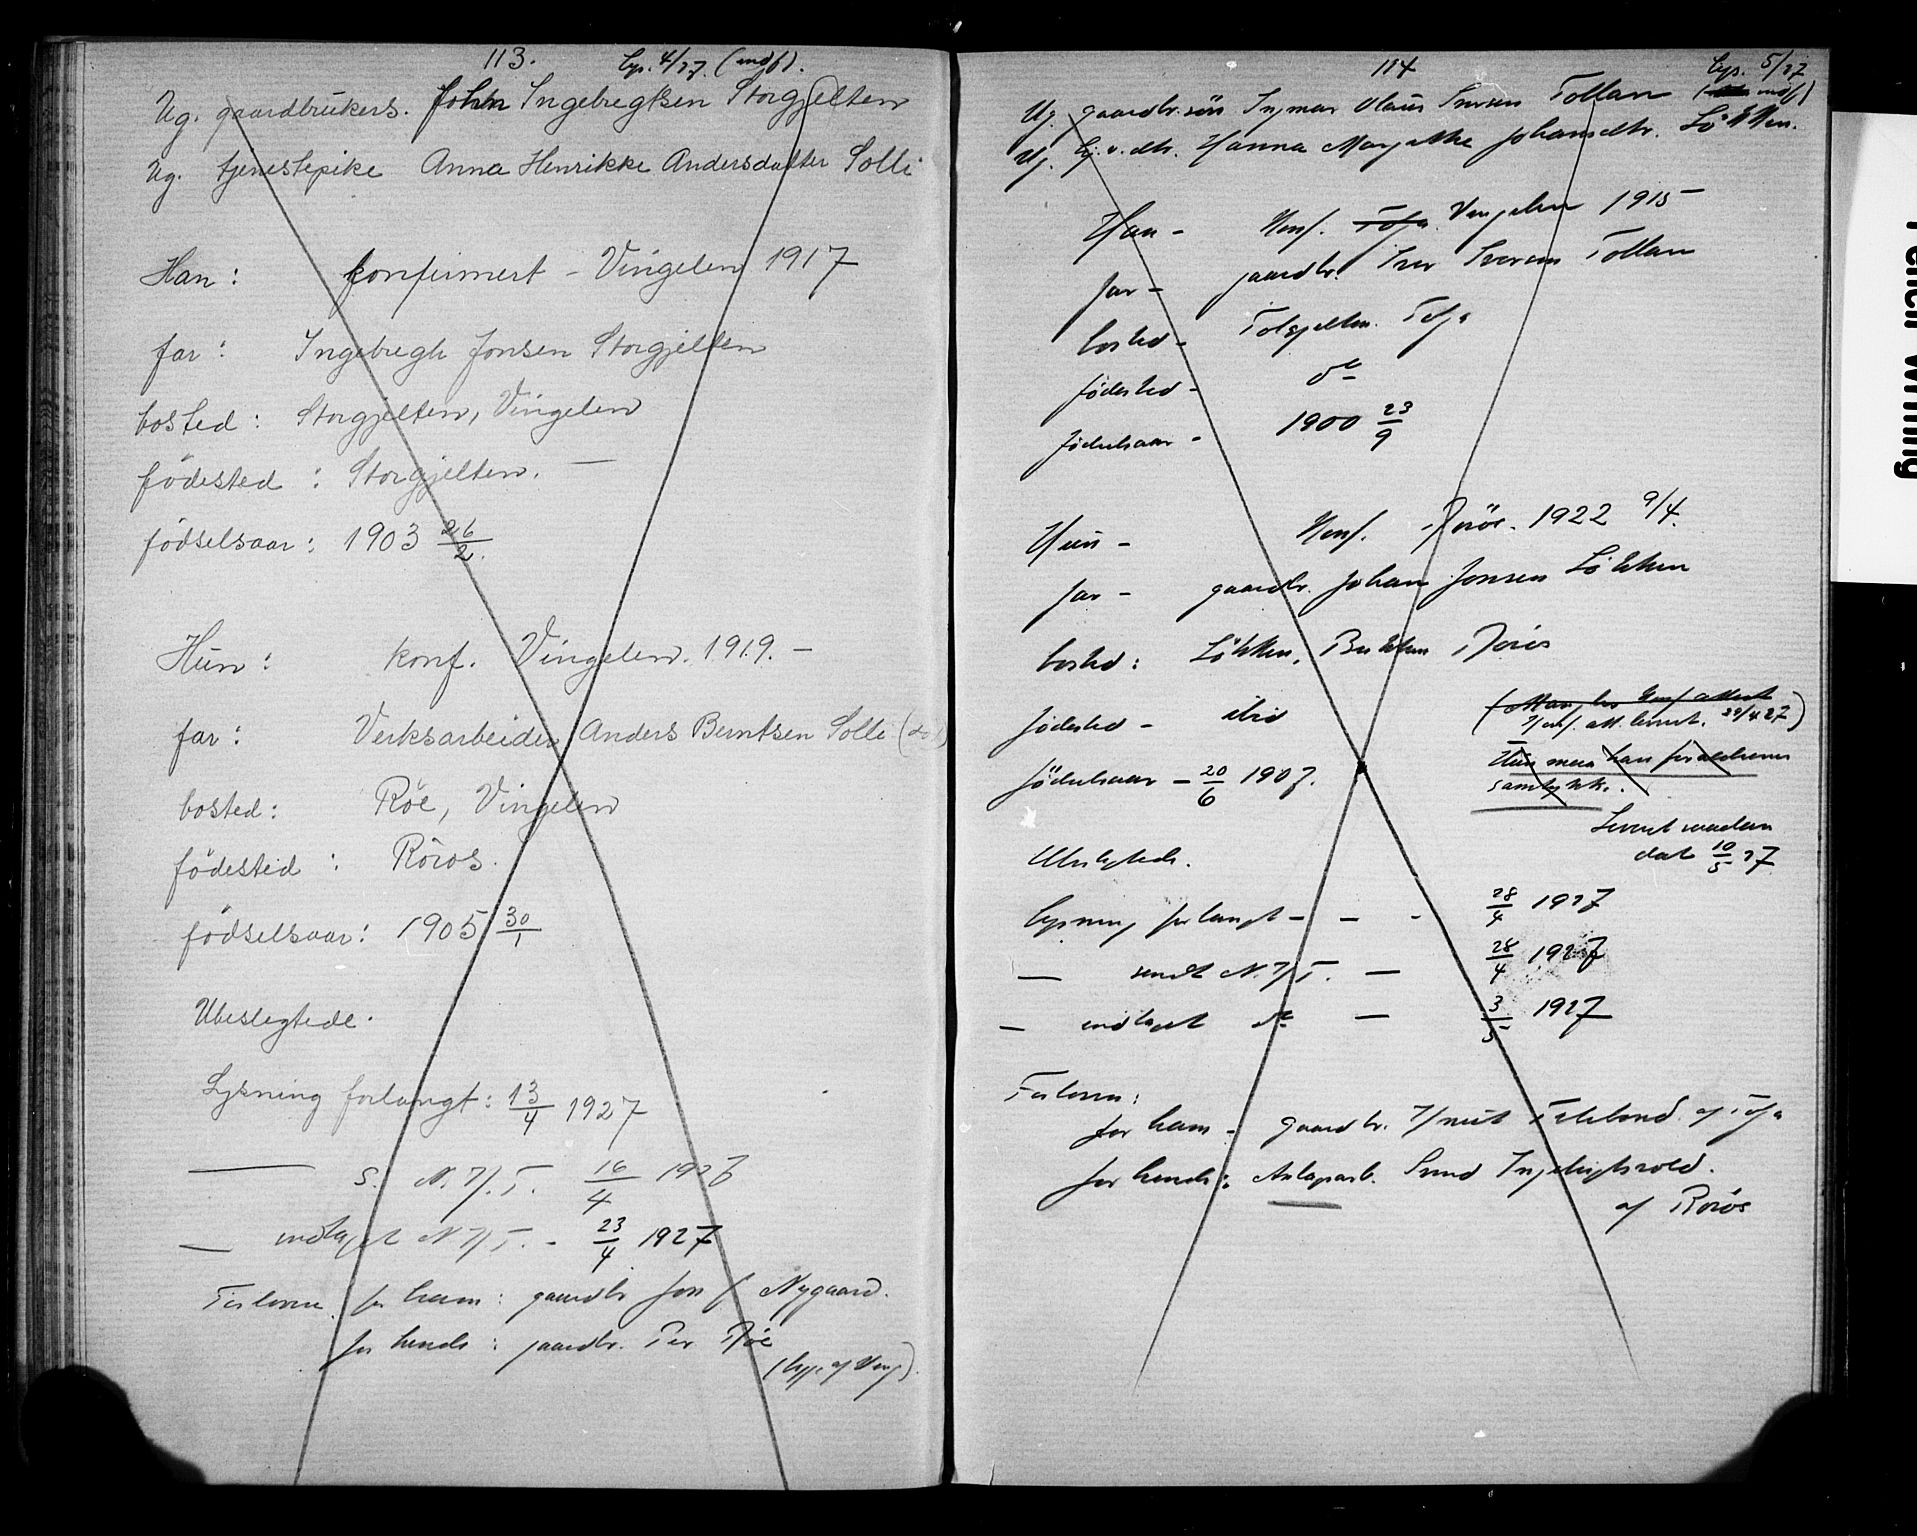 113. Lys. 4/27. (indf).
Ug. gaardbrukers. John Ingebregtsen Storgjelten
Ug. tjenestepike Anna Henrikke Andersdatter Solli
Han: konfirmert - Vingelen 1917
far: Ingebregt Jonsen Storgjelten
bosted: Storgjelten, Vingelen
födested: Storgjelten. —
födselsaar: 1903 26/2.
Hun: konf. Vingelen. 1919. -
far: Verksarbeider Anders Berntsen Solli
bosted: Röe, Vingelen
födested: Röros.
födselsaar: 1905 30/1
Ubeslegtede.
Lysning forlangt: 13/4 1927
— S. N. Ø. T. 16/4 1927
— indtaget N. Ø. T. - 23/4 1927
Forlovere for ham: gaardbr Jon J Nygaard.
for hende: gaardbr. Per Röe
(begge af Ving)
114 Lys. 5/27
Ug. gaardbr.sön Ingmar Olaus Iversen Tollan (indf)
Ug. dtr. Hanna Margethe Johansdtr. Lökken.
Han - Konf. Tolga Vingelen 1915
far - gaardbr. Iver Iversen Tollan
bosted - Tolga
födested - do
födselsaar - 1900 23/9
Hun - Konf. Röros. 1922 9/4.
far - gaardbr. Johan Jonsen Lökken
bosted: Lökken, Brekken Röros
födested - ibid
(Mangler konf attest
Konf. att. levert. 29/4 27)
födselsaar - 20/6 1907.
Hun maa have foraldrenes
samtykke.
Levert
dat 10/5 27
Ubeslegtede.
Lysning forlangt - - - 28/4 1927
— sendt N. Ø. T. — 28/4 1927
— indtaget do — 3/5 1927
Forlovere:
for ham - gaardbr. af Tolga
for hende: Ingebrigtsvold.
af Röros